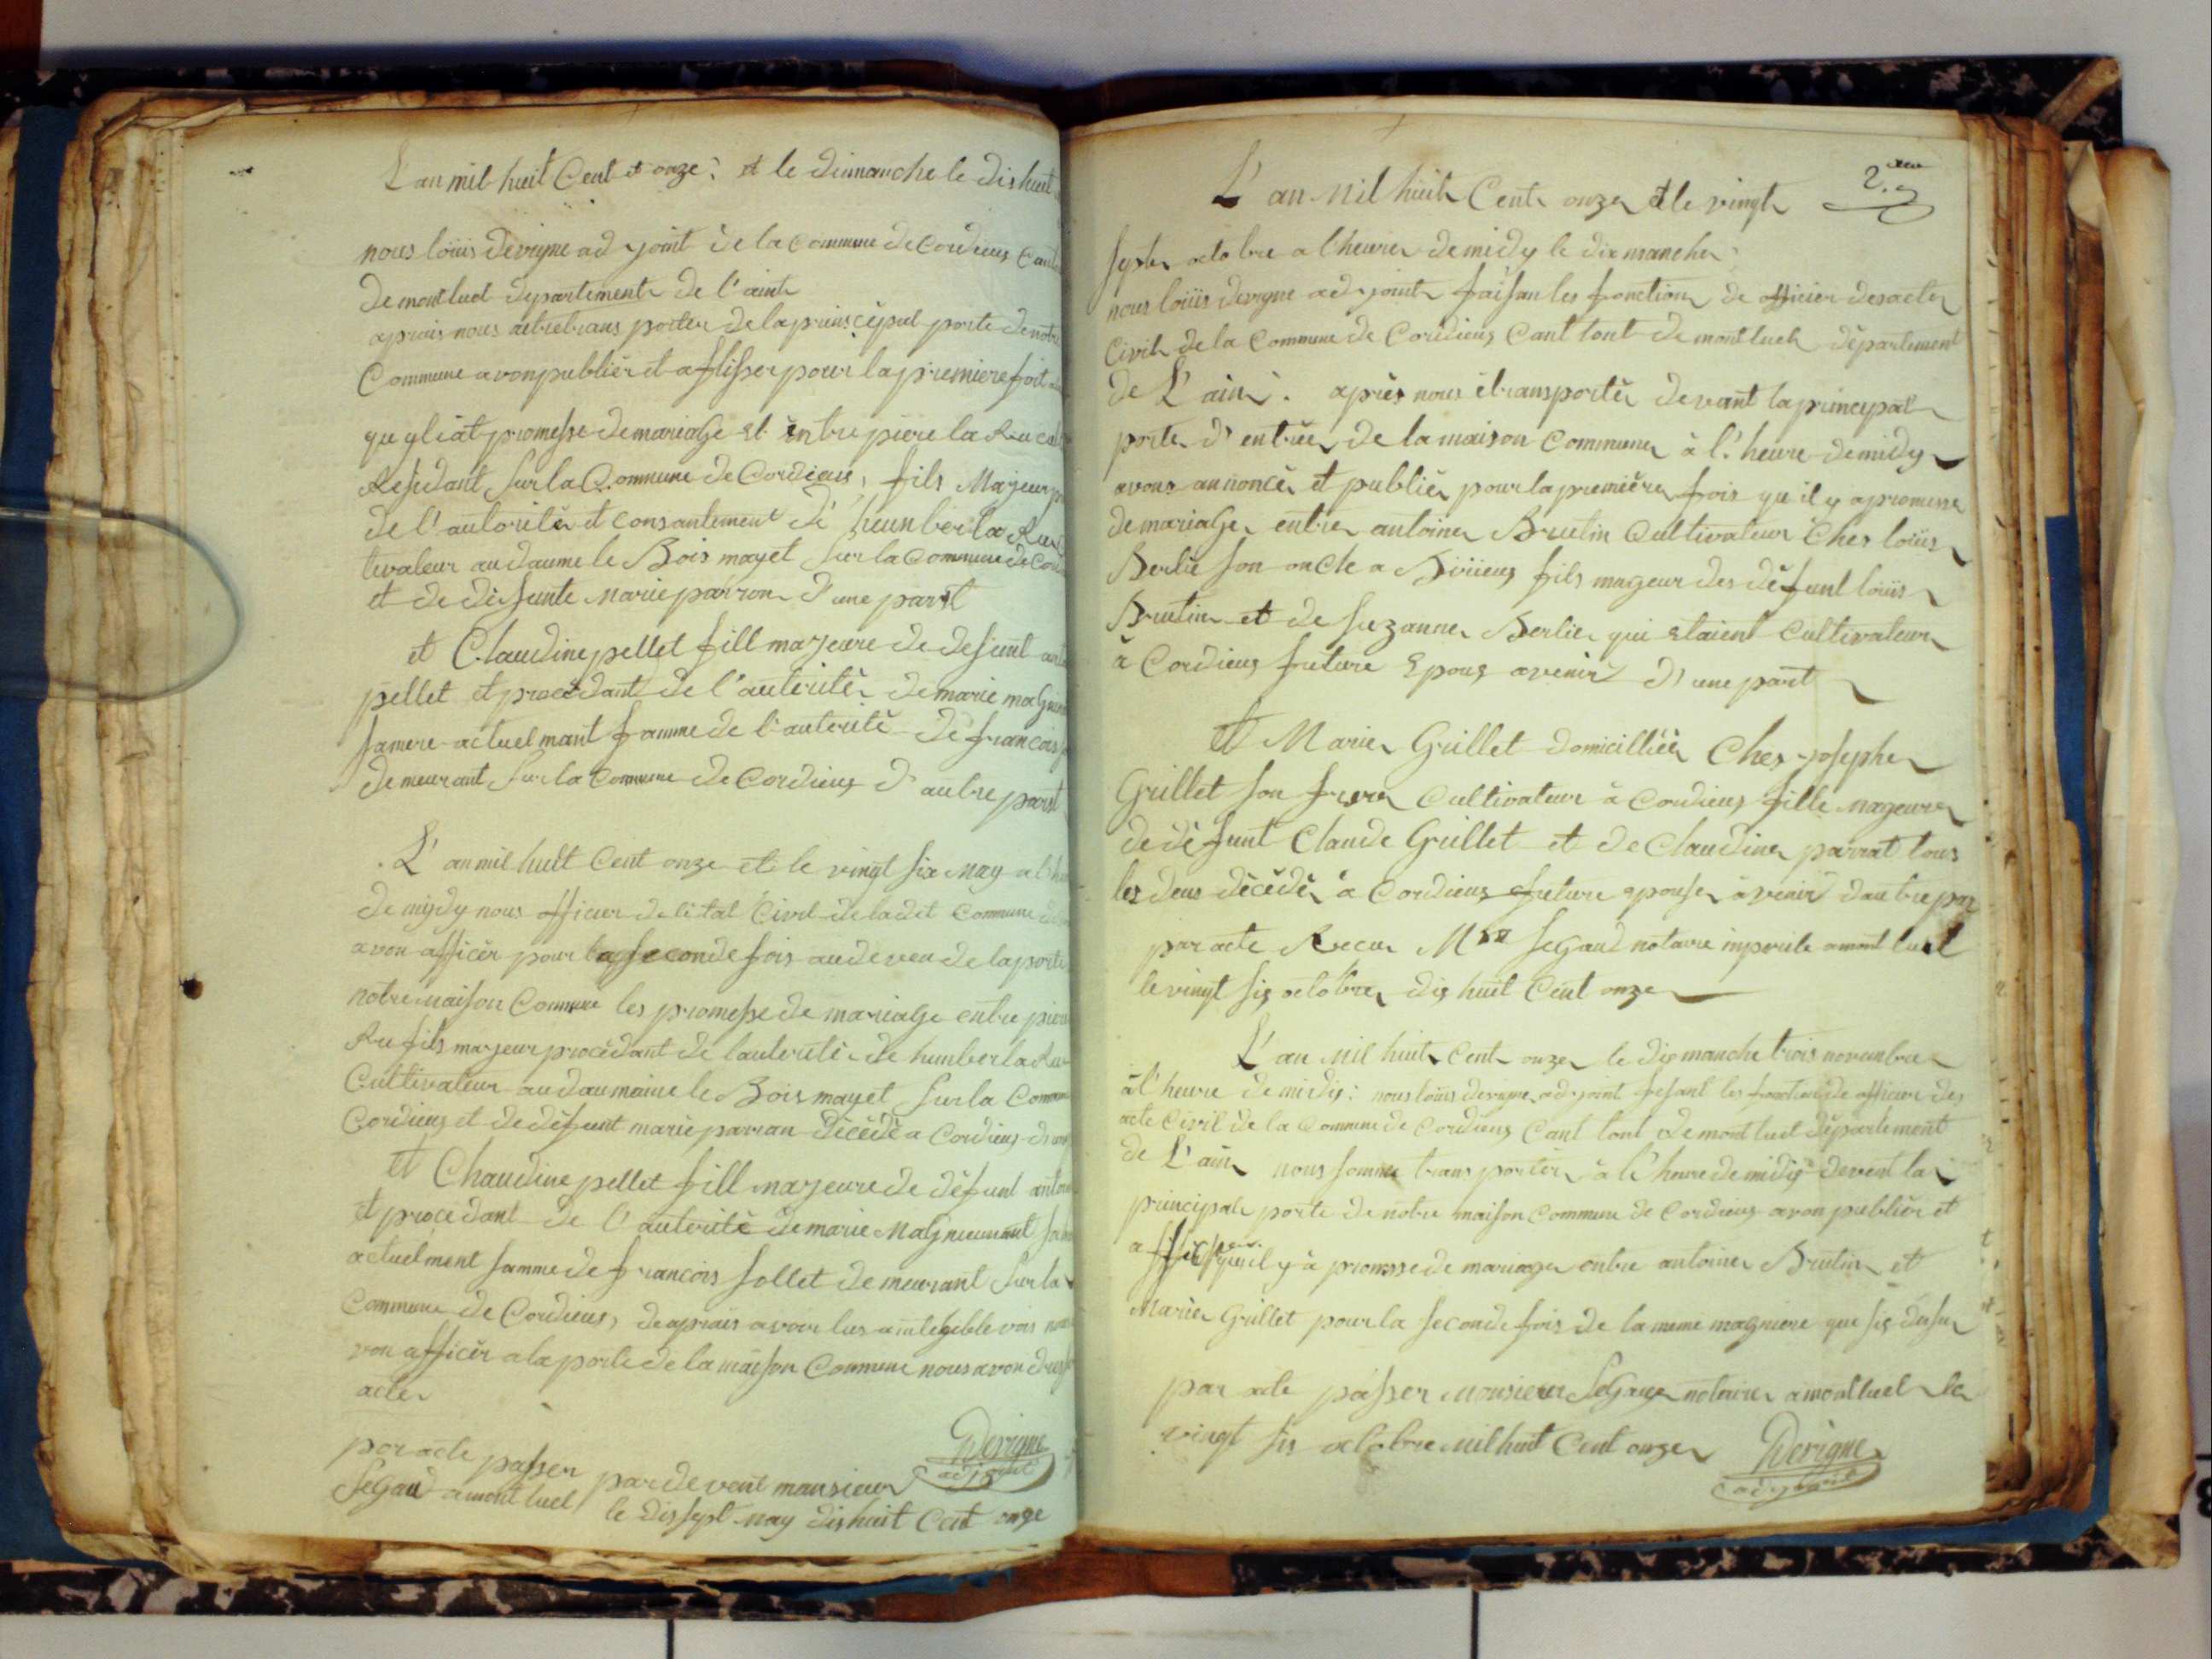 L'an mil huit Cent et onze; et le dimanche le dishuit
nous loüis devigne ad joint de la commune de Cordieus Cant
de montluel departement de l'aint
aprais nous aitre trans porter de la prinscepal porte de notre
Commune avon publier et aflisser pour la premiere foit
qu yliat promesse de mariage et entre piere la Rue
Residant sur la Commune de Cordieus, fils Majeur
de l'autoritér et consantement de heunber la Rue
tivateur au daume le Bois mayet sur la commune de Cor
et de défunte Marie parron d'une parrt
et Claudine pellet fill majeure de defunt
pellet et procedant de l'auteritér de marie
samere actuelmant famme de l'auterité de francois
demeurant sur la Commune de Cordieus d'autre parrt
L' an mil huit Cent onze et le vingt six may a l'h
de mydy nous officier de l'étal Civil de ladit Commune
avon afficér pour la seconde fois au deven de la porte
notre maison Commune les promesse de mariage entre piere
Rue fils majeur procédant de lauterité de humber la Rue
Cultivateur au daumaine le Bois mayet sur la Comm
Cordieus et de défunt marie parran décédé a Cordieus
Et Chaudine pellet fill majeure de défunt anto
et procedant de l'auterité de marie
actuelment famme de francois follet demeurant sur la
Commune de Cordieus, de aprais avoir lus vois
von afficér a la porte de la maison Commune nous avon dress
acter
par acte passer par devent mansieur
Segaud a mont luel le dissept may dishuit Cent onze
Devigne
adjoint
2.eme
L' an Mil huit Cent onze et le vingt
septer octobre a l'heurer de midy le dixmancher
nous loüis devigne adjoint faisan les fonction de officier des acter
Civil de la Commune de Cordieus Cant tont de montluel département
de L'ain. après nous etransportér devant la principal
porter d'entréer de la maison Communer à l'heure de midy
avons annoncér et publiér pour la premièrer fois qu il y a promesse
de mariager entrer antoiner Brutin Cultivateur Ches loüis
Berlié son oncle a fils mageur des défunt loüis
Brutin et de suzanner Berlier qui etaient Cultivateur
à Cordieus future Epous avenir d'une part
Et Marier Grillet domicilliéer Ches joseph
Grillet son frerer Cultivateur à Cordieus fille mageurer
de défunt Claude Grillet et de Claudiner parrat tous
les deus décédér à Cordieus future epouser àvenir dautre par
par acte Recu Segaud notaire a mont luel
le vingt sis octobrer dis huit Cent onze
L' an Mil huit Cent onze le dixmanche trois novenbre
à l'heure de midy: nous loüis devigne adjoint fesant les fonction de officier des
acte Civil de la Commune de Cordieus Cant tont de mont luel département
de L'ain nous somme trans portér à l'heure de midy devent la
principale porte de notre maison Commune de Cordieus avon publiér et
affisser qu il y à promsse de mariager entre antoiner Brutin et
Marier Grillet pour la seconde fois de la meme magniere que sis dessu
par acte passer monsieur notairer a montluel le
vingt sis octobre mil huit Cent onze
Devigne
adjoint